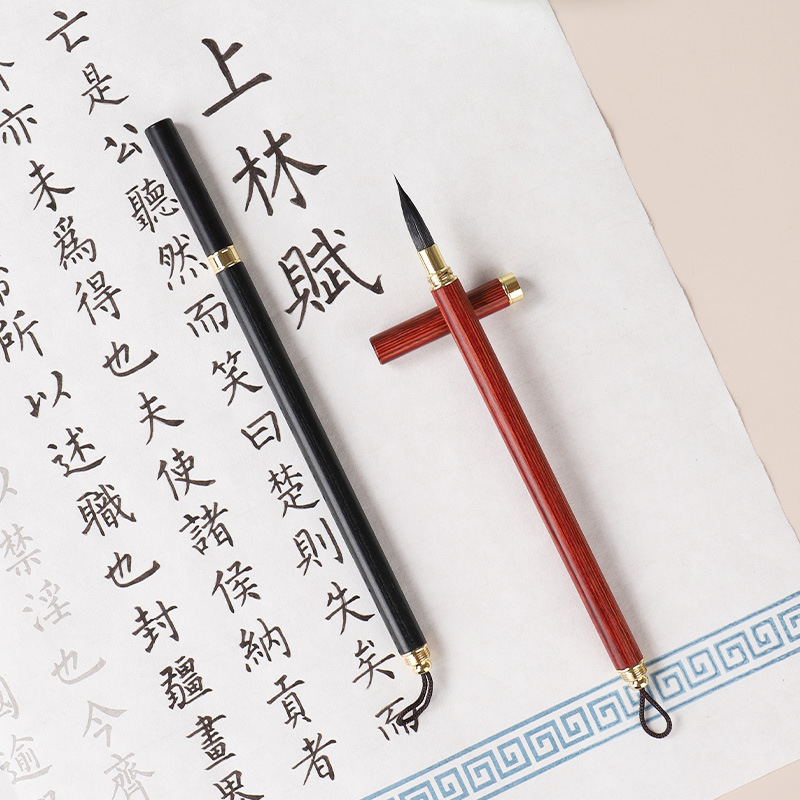 上林賦
亡是公聽然而笑曰楚則失矣而
亦未爲得也夫使諸侯納貢者
所以述職也封疆畫界
以禁淫也今齊
逾